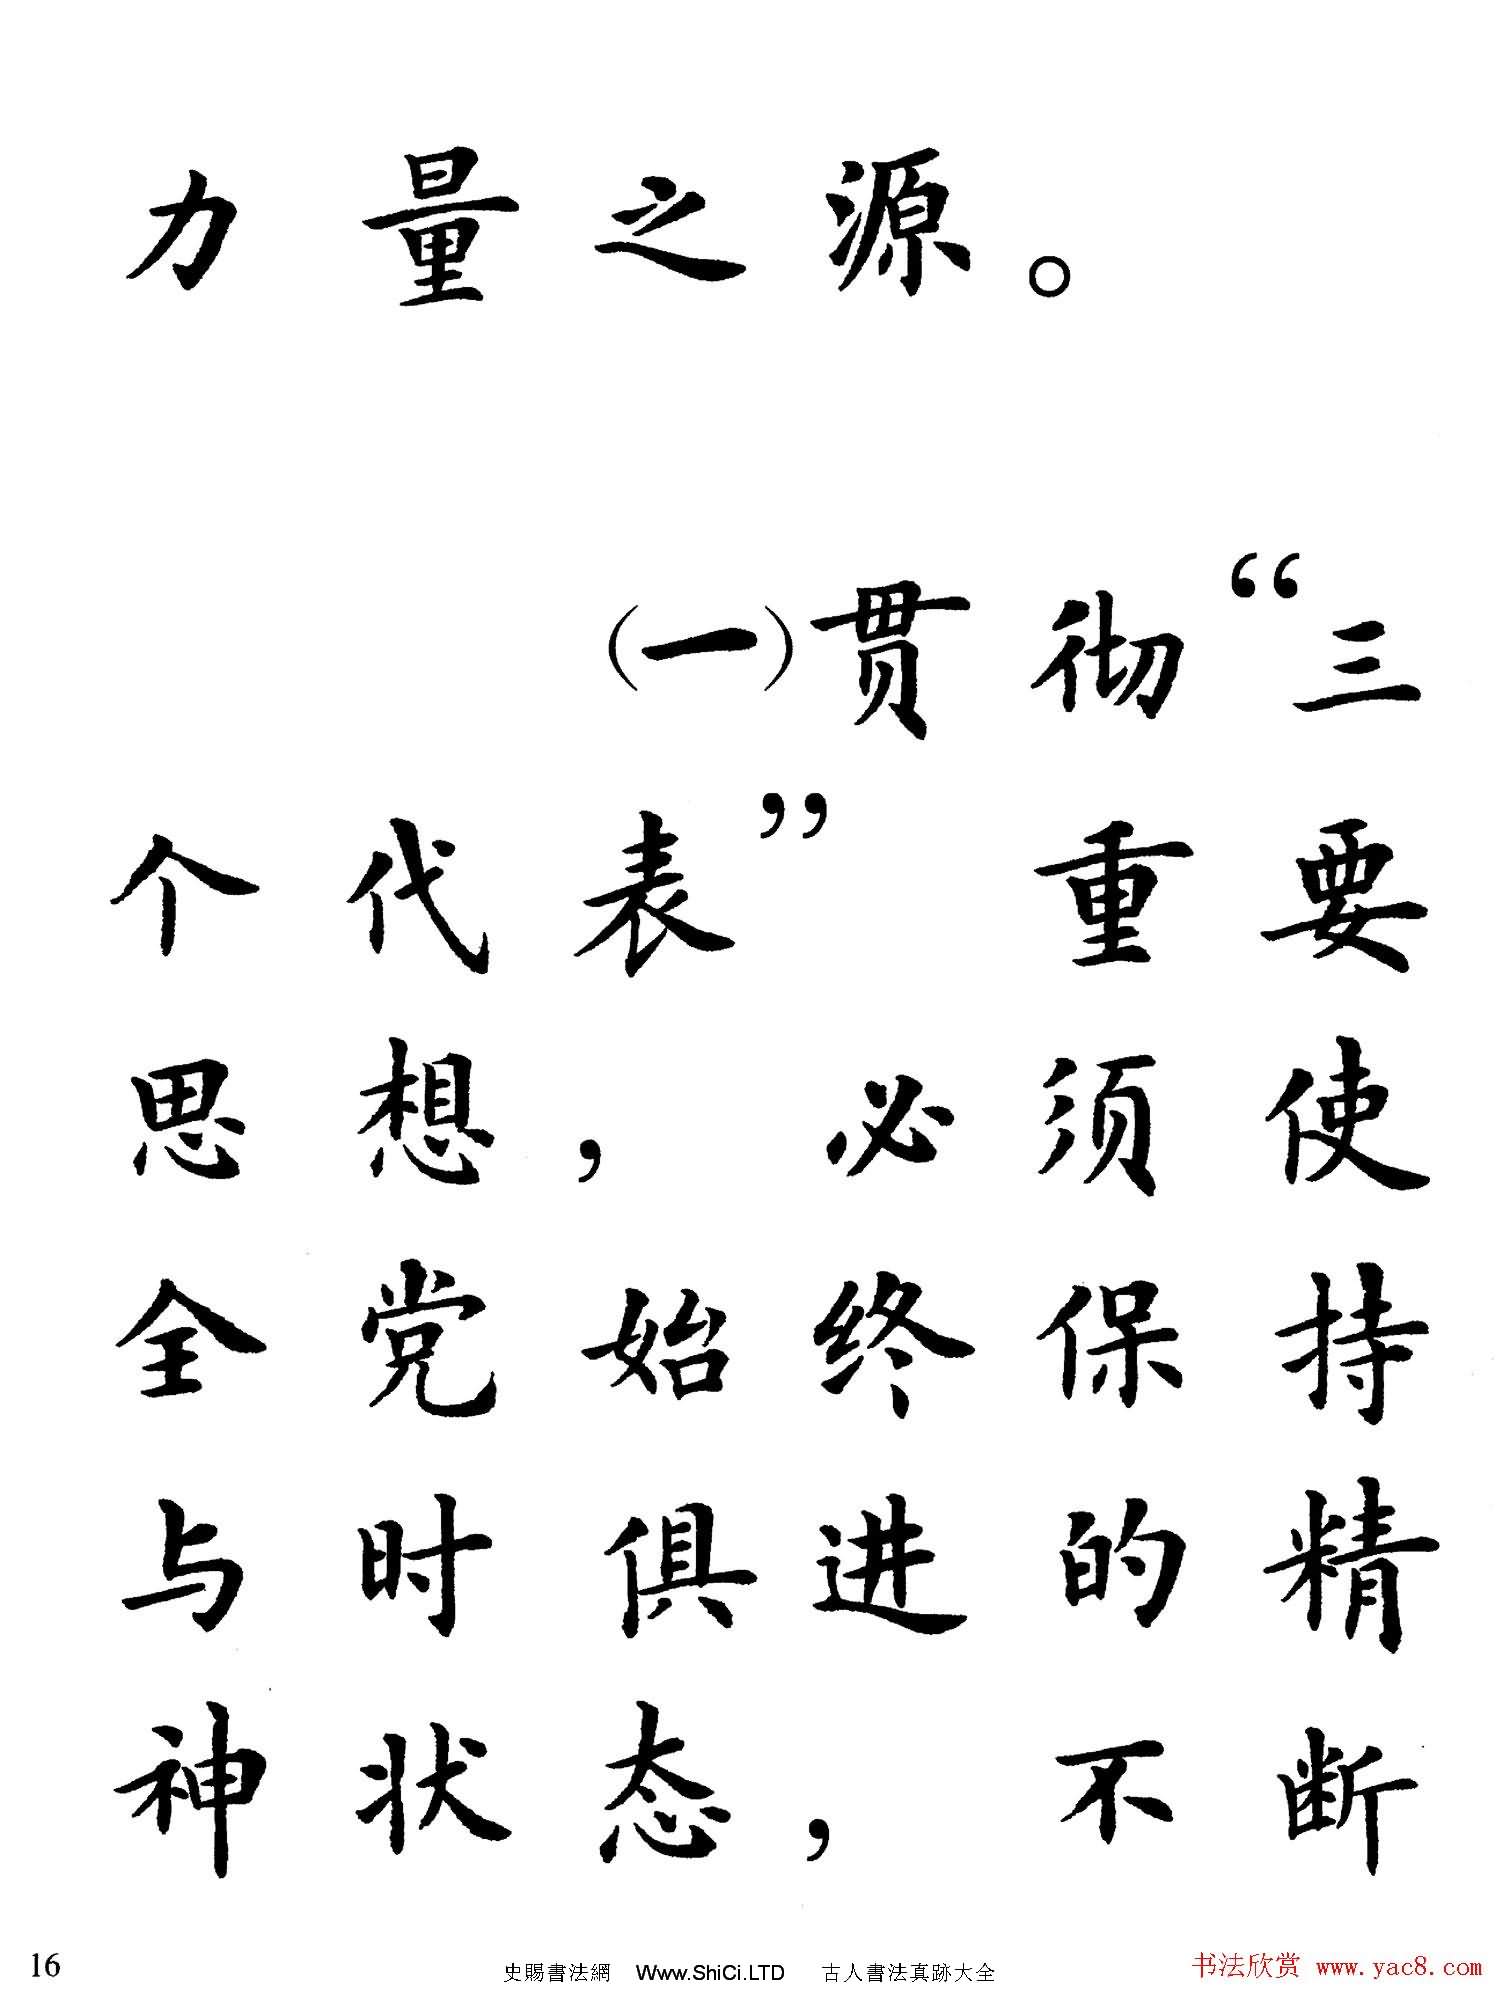 力量之源。
(一)贯彻“三
个代表”重要
思想，必须使
全党始终保持
与时俱进的精
神状态，不断
16
史賜書法網 Www.ShiCi.LTD 古人書法真跡大全
书法欣赏 www.yac8.com